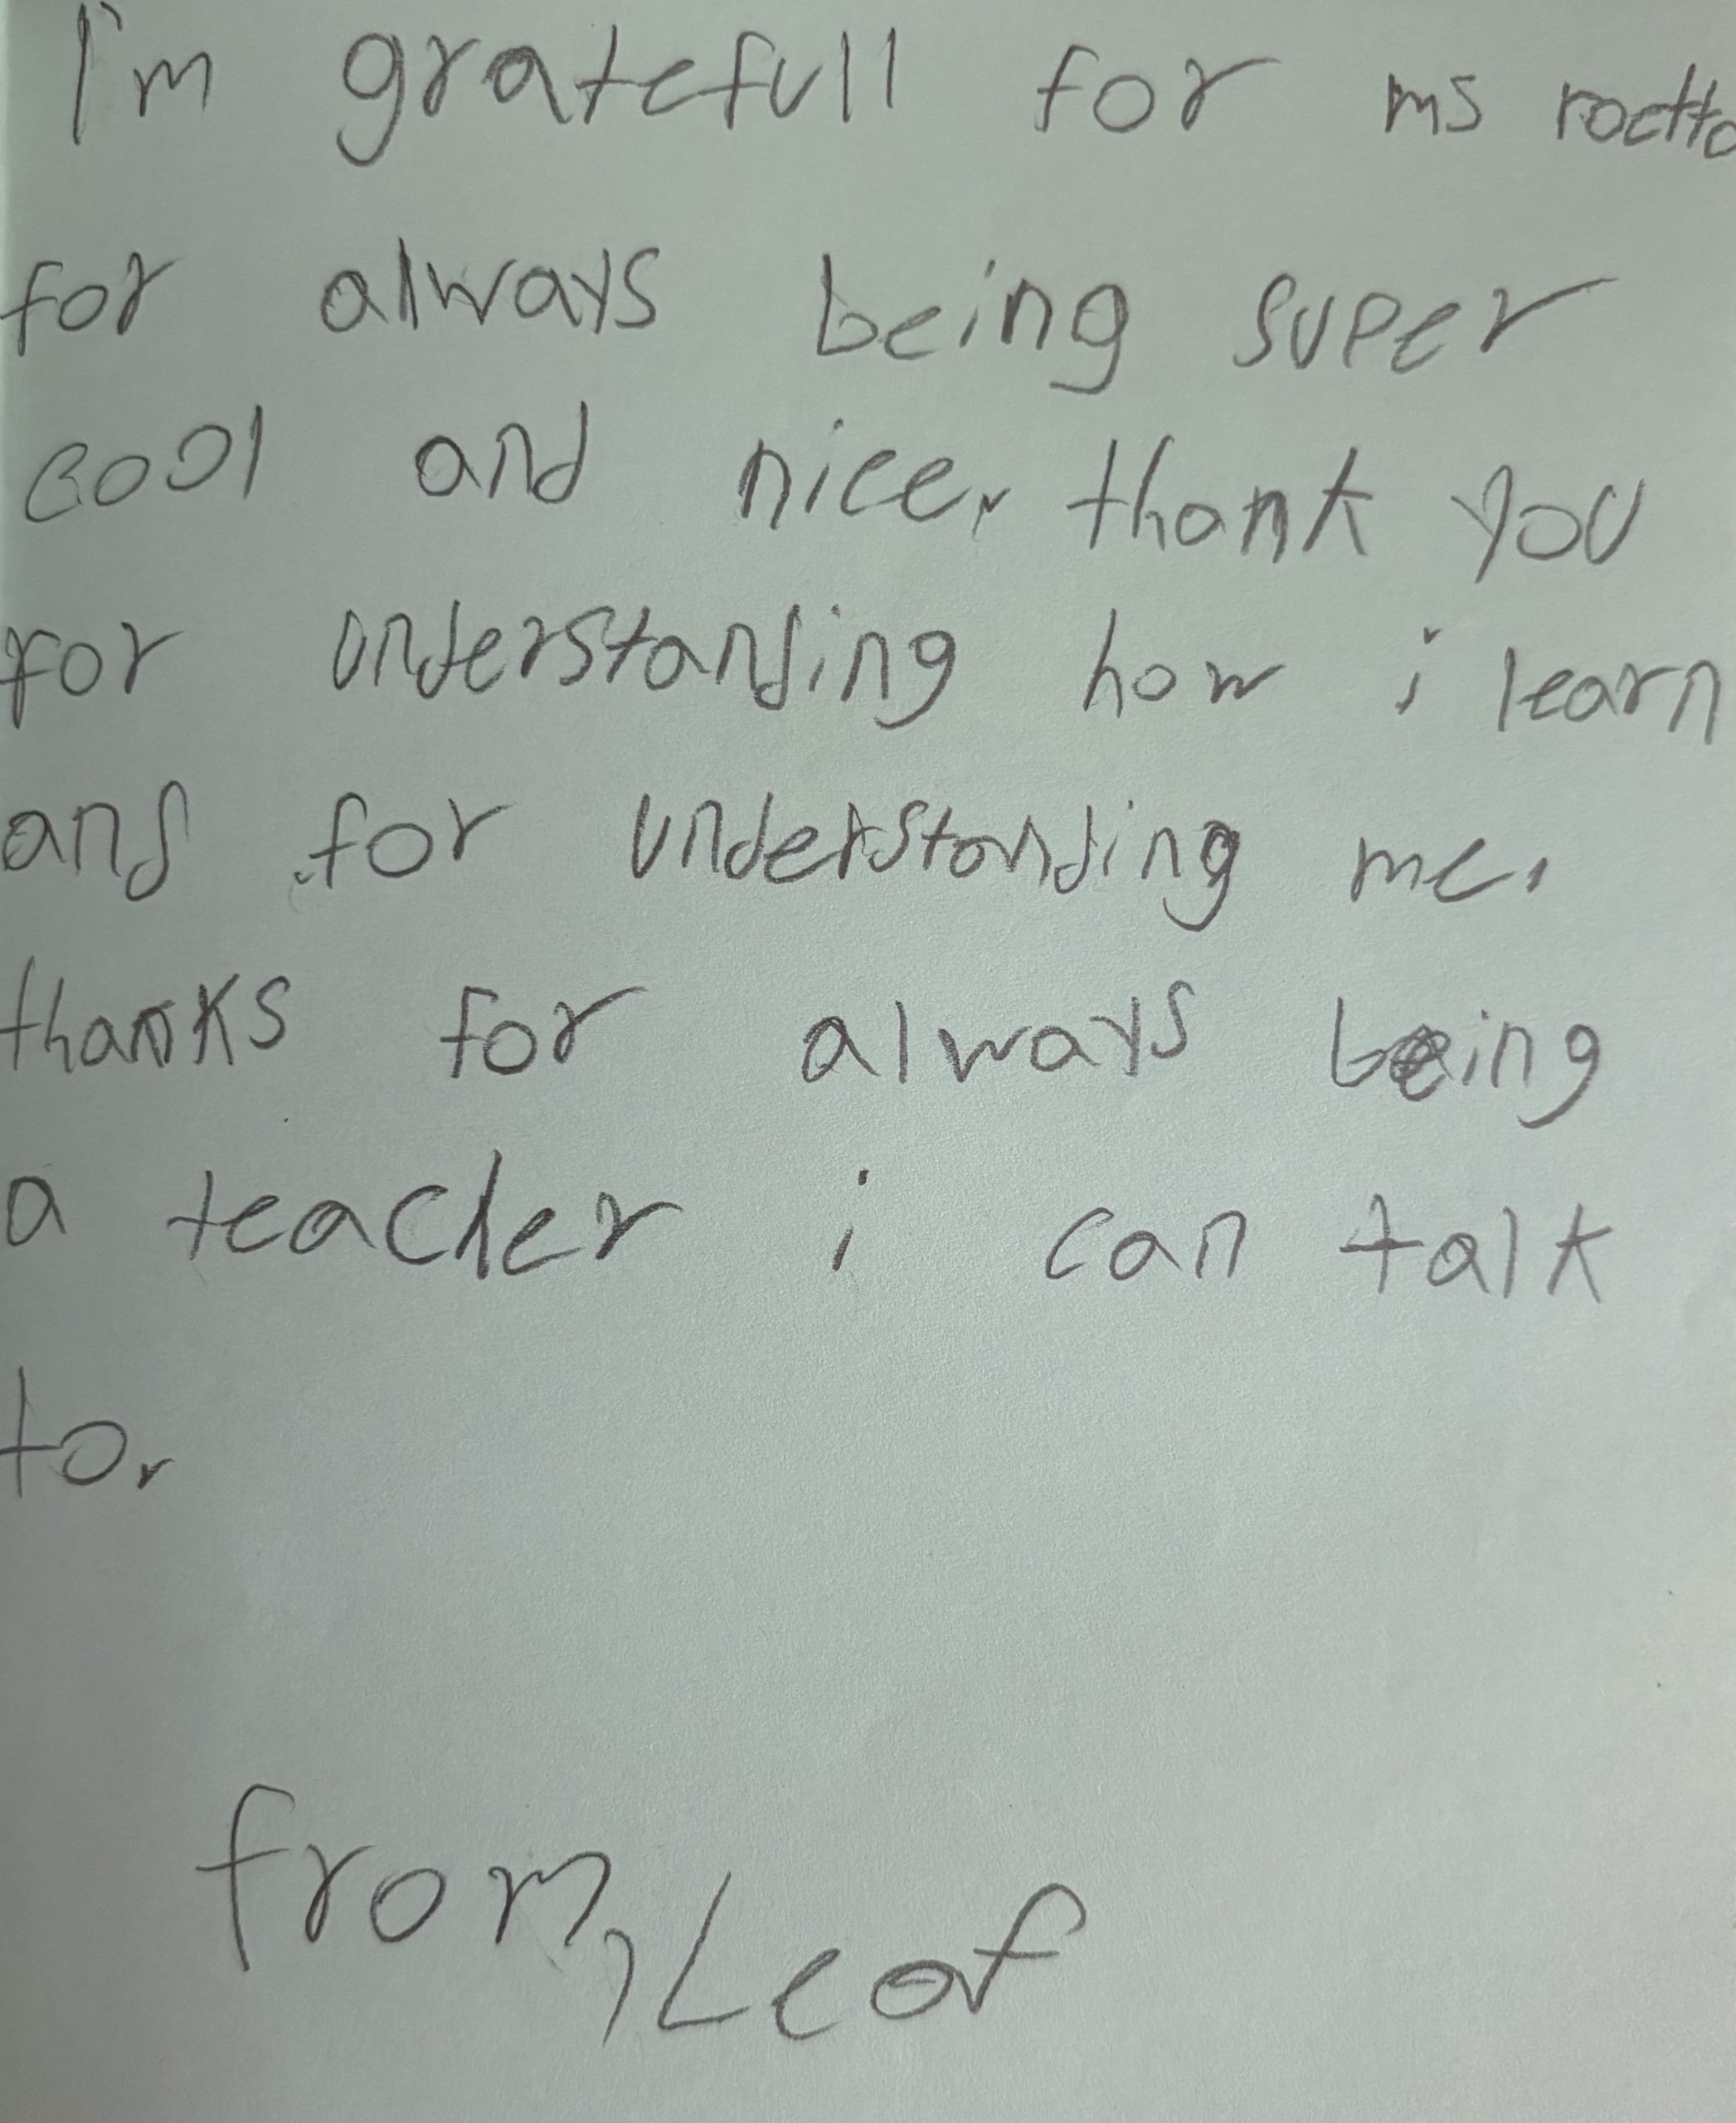 I'm gratefull for ms
for always being super
cool and nice. thank you
for understanding how i learn
and for understanding me.
thanks for always being
a teacher i can talk
to.
from, Leaf